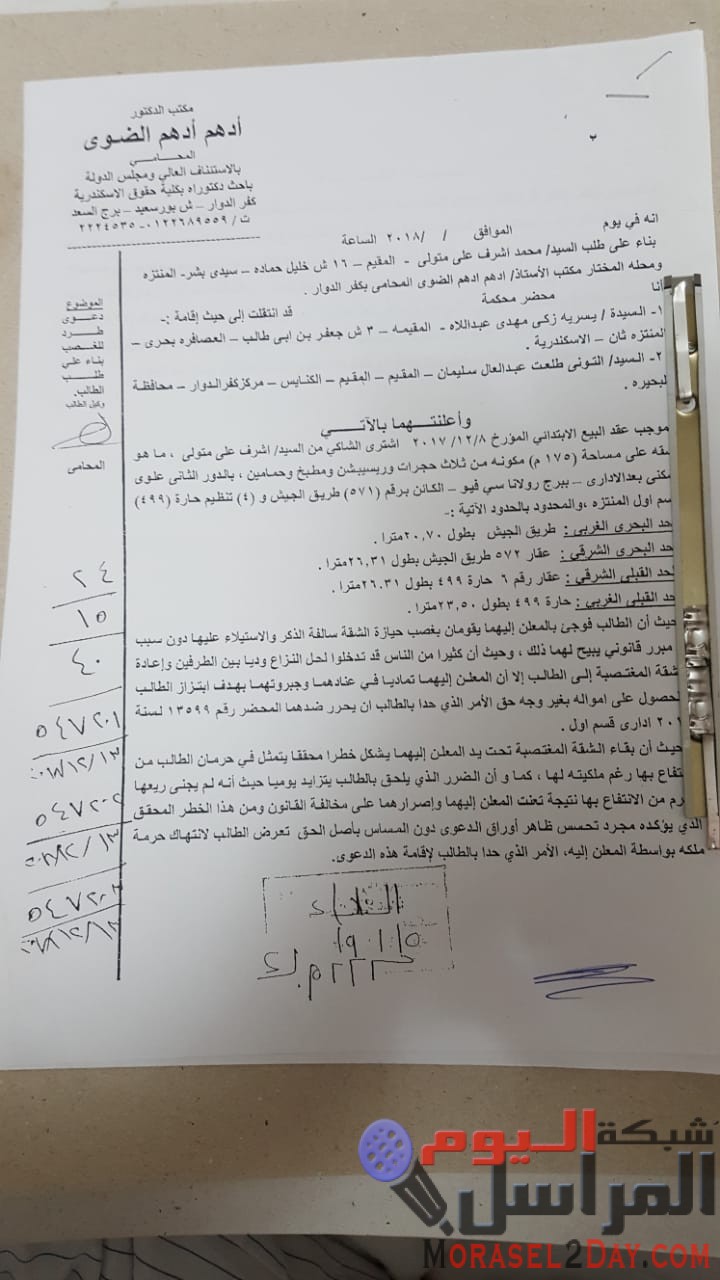 مكتب الدكتور
أدهم أدهم الضوى
المحامــــي
بالاستئناف العالي ومجلس الدولة
باحث دكتوراه بكلية حقوق الاسكندرية
كفر الدوار – ش بورسعيد – برج السعد
ت / ٠١٢٢٦٨٩٥٥٩ - ٢٢٢٤٥٣٥
انه في يوم الموافق / /٢٠١٨ الساعة
بناء على طلب السيد/ محمد اشرف على متولى - المقيم – ١٦ ش خليل حماده – سيدى بشر- المنتزه
ومحله المختار مكتب الأستاذ/ ادهم ادهم الضوى المحامى بكفر الدوار .
أنا محضر محكمة قد انتقلت إلى حيث إقامة :-
١- السيدة / يسريه زكى مهدى عبداللاه - المقيمه – ٣ ش جعفر بن ابى طالب – العصافره بحرى –
المنتزه ثان – الاسكندرية .
٢- السيد/ التونى طلعت عبدالعال سليمان – المقيم – المقيم – الكنايس – مركزكفرالدوار – محافظة
لبحيره .
وأعلنتـــهما بالآتـــي
موجب عقد البيع الابتدائي المؤرخ ٢٠١٧/١٢/٨ اشترى الشاكي من السيد/ اشرف على متولى ، ما هو
شقه على مساحة (١٧٥ م) مكونه من ثلاث حجرات وريسيبشن ومطبخ وحمامين ، بالدور الثانى علوى
سكنى بعدالادارى – ببرج رولانا سي فيو – الكائن برقم (٥٧١) طريق الجيش و (٤) تنظيم حارة (٤٩٩)
سم اول المنتزه ،والمحدود بالحدود الآتية :-
حد البحرى الغربي : طريق الجيش بطول ٢٠,٧٠مترا .
حد البحرى الشرقي : عقار ٥٧٢ طريق الجيش بطول ٢٦,٣١مترا .
لحد القبلى الشرقي : عقار رقم ٦ حارة ٤٩٩ بطول ٢٦.٣١مترا .
حد القبلى الغربي : حارة ٤٩٩ بطول ٢٣,٥٠مترا .
حيث أن الطالب فوجئ بالمعلن إليهما يقومان بغصب حيازة الشقة سالفة الذكر والاستيلاء عليها دون سبب
مبرر قانوني يبيح لهما ذلك ، وحيث أن كثيرا من الناس قد تدخلوا لحل النزاع وديا بين الطرفين وإعادة
شقة المغتصبة إلى الطالب إلا أن المعلن إليهما تماديا في عنادهما وجبروتهما بهدف ابتزاز الطالب
لحصول على امواله بغير وجه حق الأمر الذي حدا بالطالب ان يحرر ضدهما المحضر رقم ١٣٥٩٩ لسنة
٢٠١ ادارى قسم اول .
حيث أن بقاء الشقة المغتصبة تحت يد المعلن إليهما يشكل خطرا محققا يتمثل في حرمان الطالب من
تفاع بها رغم ملكيته لها ، كما و أن الضرر الذي يلحق بالطالب يتزايد يوميا حيث أنه لم يجنى ريعها
رم من الانتفاع بها نتيجة تعنت المعلن إليهما وإصرارهما على مخالفة القانون ومن هذا الخطر المحقق
الذي يؤكده مجرد تحسس ظاهر أوراق الدعوى دون المساس بأصل الحق تعرض الطالب لانتهاك حرمة
ملكه بواسطة المعلن إليه، الأمر الذي حدا بالطالب لإقامة هذه الدعوى.
الموضوع
دعـــوى
طـــرد
للغصب
بناء علي
طلـــب
الطالب.
وكيل الطالب
المحامى
٢٤
١٥
٤٠
شبكة اليوم
المراسل
MORASEL2DAY.COM